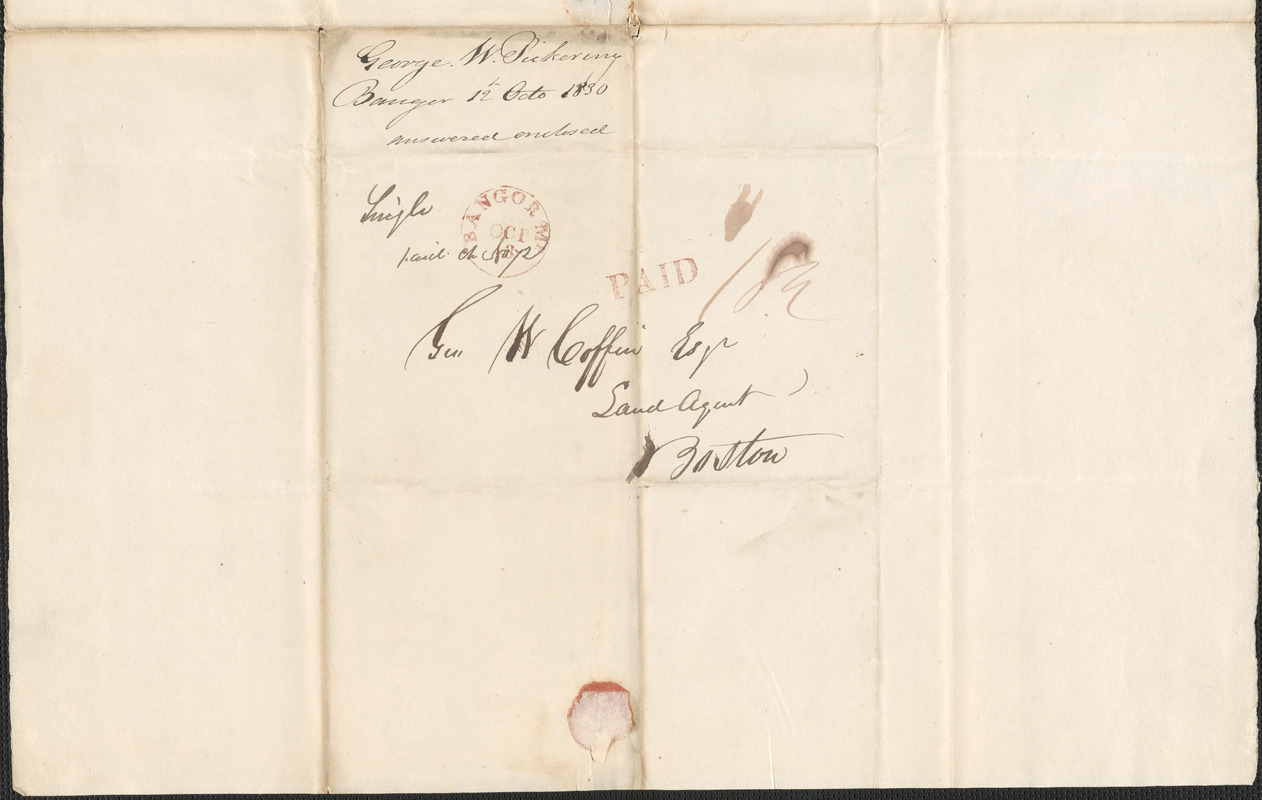 George. W. Pickering
Bangor 12 Octo 1830
answered enclosed
Single
BANGOR ME
OCT
paid Ch No 72
PAID
18¾
Geo W Coffin Esqr
Land Agent
Boston